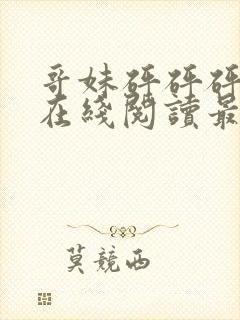 哥妹砰砰砰
在綫閱讀最
莫競西